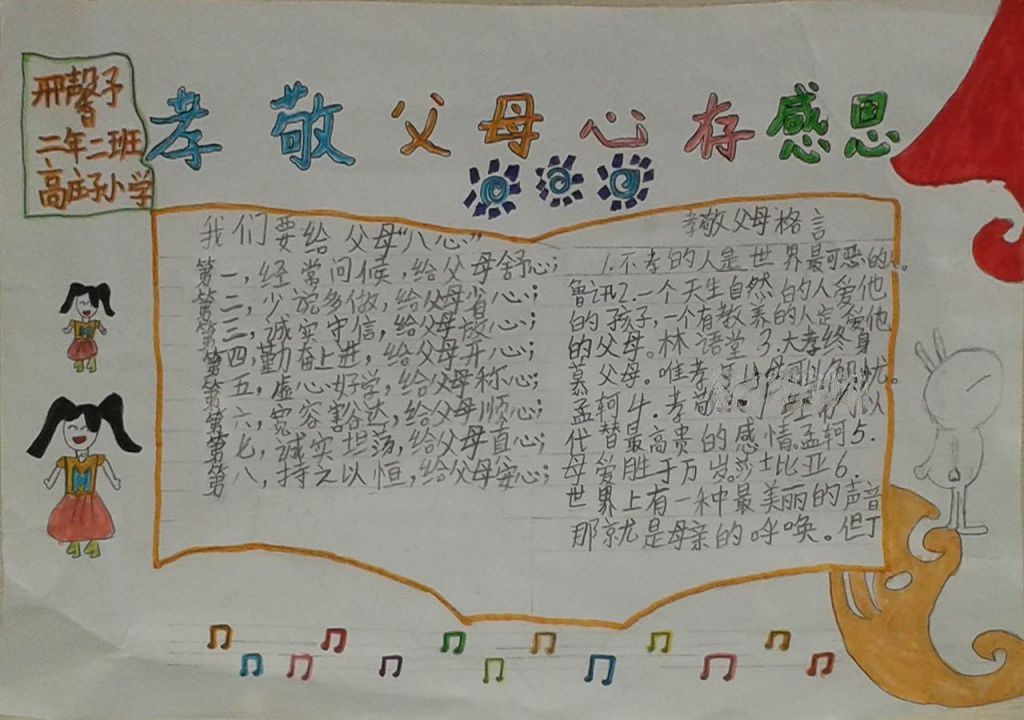 邢馨予
二年二班
高庄子小学
孝敬父母心存感恩
我们要给父母“八心”
第一,经常问候,给父母舒心;
第二,少说多做,给父母省心;
第三,诚实守信,给父母放心;
第四,勤奋上进,给父母开心;
第五,虚心好学,给父母称心;
第六,宽容豁达,给父母顺心;
第七,诚实坦荡,给父母直心;
第八,持之以恒,给父母安心;
孝敬父母格言
1.不孝的人是世界最可恶的人。
2.一个天生自然的人爱他
的孩子,一个有教养的人定会爱他
的父母。林语堂3.大孝终身
慕父母。唯孝
忧。
孟轲4.孝敬
以
代替最高贵的感情孟轲5.
母爱胜于万岁莎士比亚6.
世界上有一种最美丽的声音
那就是母亲的呼唤。但丁
M
M